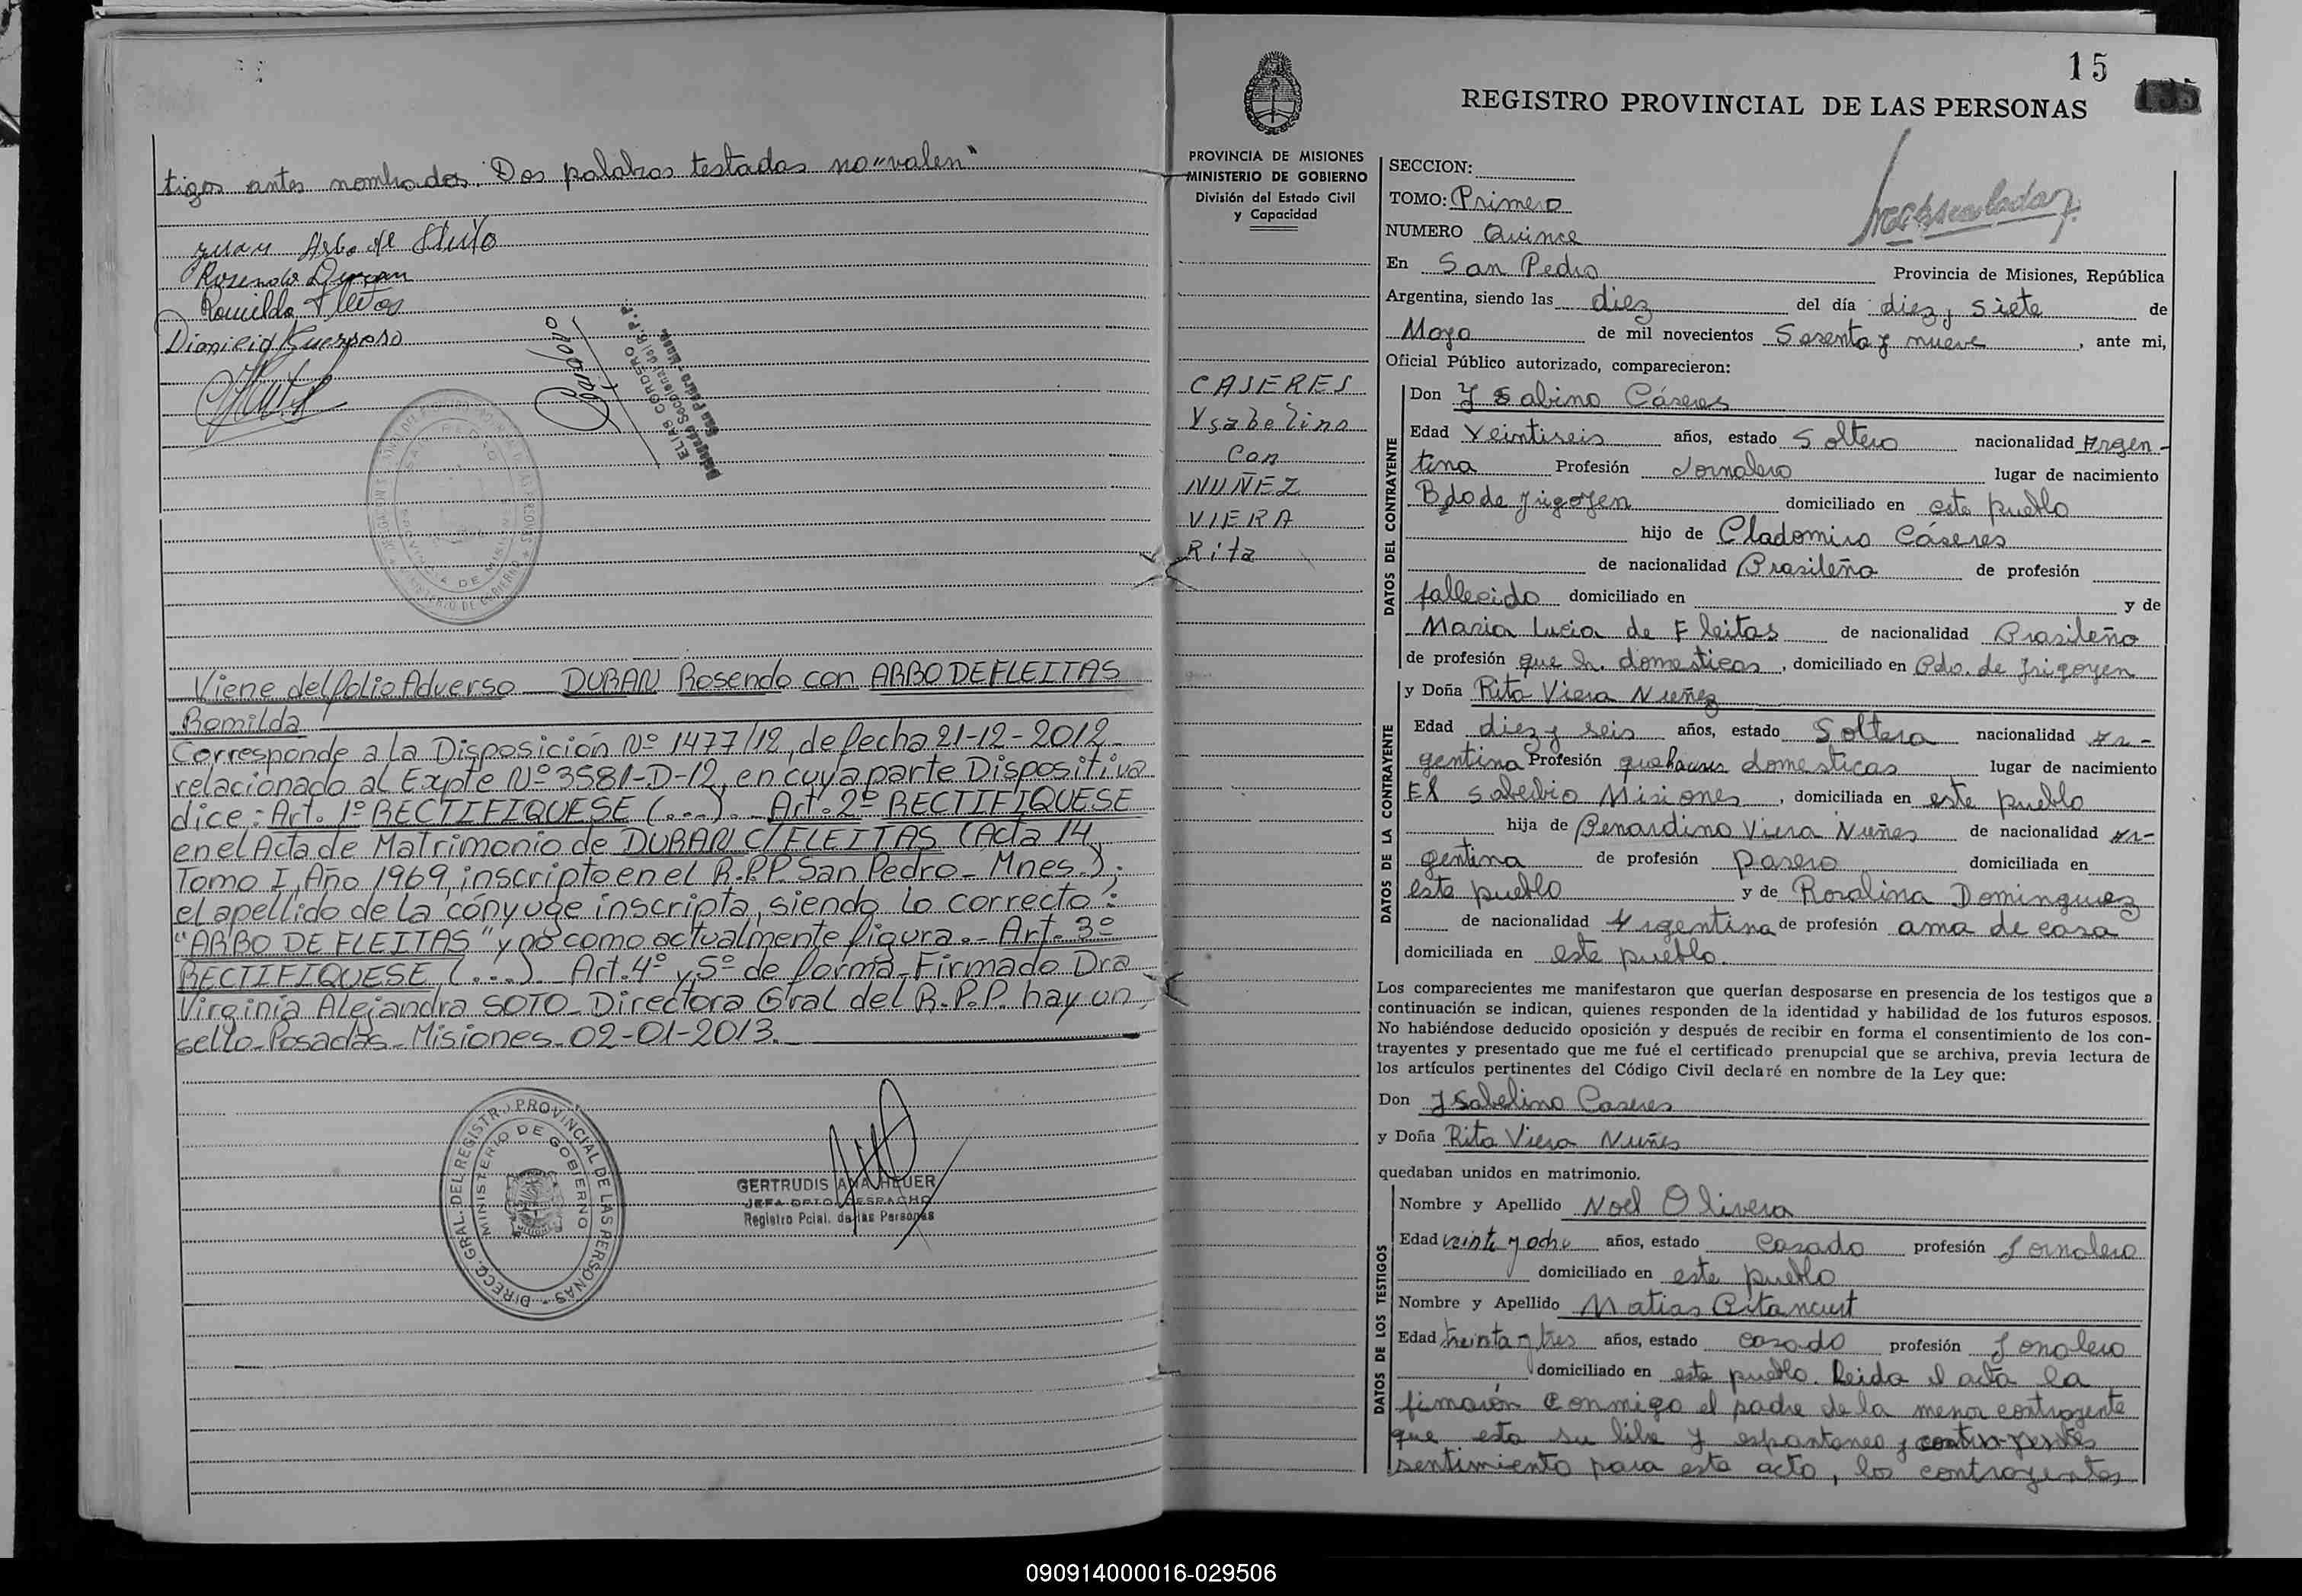 tigos antes nombrados. Dos palabras testadas no "valen"
Rosendo Duran
Romilda Fleitas
Dionicio
Cordero
ELIAS CORDERO
San Pedro - Mnes.
Viene del folio Adverso DURAN Rosendo con ARBO DE FLEITAS
Romilda
Corresponde a la Disposición Nº 1477/12, de fecha 21-12-2012
relacionado al Expte Nº 3581-D-12, en cuya parte Dispositiva
dice: Art. 1º RECTIFIQUESE (...). Art. 2º RECTIFIQUESE
en el Acta de Matrimonio de DURAN C/ FLEITAS (Acta 14,
Tomo I, Año 1969, inscripto en el R.P.P. San Pedro - Mnes.);
el apellido de la cónyuge inscripta, siendo lo correcto:
"ARBO DE FLEITAS" y no como actualmente figura.- Art. 3º
RECTIFIQUESE (...). Art. 4º y 5º de forma - Firmado Dra
Virginia Alejandra SOTO - Directora Gral del R.P.P. hay un
sello - Posadas - Misiones - 02-01-2013.
DIRECC. GRAL. DEL REGISTRO PROVINCIAL DE LAS PERSONAS
MINISTERIO DE GOBIERNO
GERTRUDIS ANA HEUER
JEFA DPTO. DESPACHO
Registro Pcial. de las Personas
15
REGISTRO PROVINCIAL DE LAS PERSONAS
PROVINCIA DE MISIONES
MINISTERIO DE GOBIERNO
División del Estado Civil
y Capacidad
CASERES
Ysabelino
con
NUÑEZ
VIERA
Rita
SECCION:
TOMO: Primero
NUMERO Quince
En San Pedro Provincia de Misiones, República
Argentina, siendo las diez del día diez y siete de
Mayo de mil novecientos Sesenta y nueve, ante mi,
Oficial Público autorizado, comparecieron:
DATOS DEL CONTRAYENTE
Don Ysabino Cáseres
Edad Veintiseis años, estado Soltero nacionalidad Argen-
tina Profesión Jornalero lugar de nacimiento
Bdo de Irigoyen domiciliado en este pueblo
hijo de Cladomiro Cáseres
de nacionalidad Brasileña de profesión
fallecido domiciliado en y de
Maria Lucia de Fleitas de nacionalidad Brasileño
de profesión que h. domesticos, domiciliado en Bdo. de Irigoyen
DATOS DE LA CONTRAYENTE
y Doña Rita Viera Nuñez
Edad diez y seis años, estado Soltera nacionalidad Ar-
gentina Profesión domesticos lugar de nacimiento
El Soberbio Misiones, domiciliada en este pueblo
hija de Benardino Viera Nuñes de nacionalidad Ar-
gentina de profesión pasero domiciliada en
este pueblo y de Rosalina Dominguez
de nacionalidad Argentina de profesión ama de casa
domiciliada en este pueblo.
Los comparecientes me manifestaron que querían desposarse en presencia de los testigos que a
continuación se indican, quienes responden de la identidad y habilidad de los futuros esposos.
No habiéndose deducido oposición y después de recibir en forma el consentimiento de los con-
trayentes y presentado que me fué el certificado prenupcial que se archiva, previa lectura de
los artículos pertinentes del Código Civil declaré en nombre de la Ley que:
Don Ysabelino Caseres
y Doña Rita Viera Nuñes
quedaban unidos en matrimonio.
DATOS DE LOS TESTIGOS
Nombre y Apellido Noel Olivera
Edad veinte y ocho años, estado Casado profesión Jornalero
domiciliado en este pueblo
Nombre y Apellido Matias Bitancurt
Edad treinta y tres años, estado casado profesión Jonalero
domiciliado en este pueblo. Leida el acta la
firmaron conmigo el padre de la menor contrayente
que esta su libre y espontaneo y
sentimiento para este acto, los contrayentes
090914000016-029506